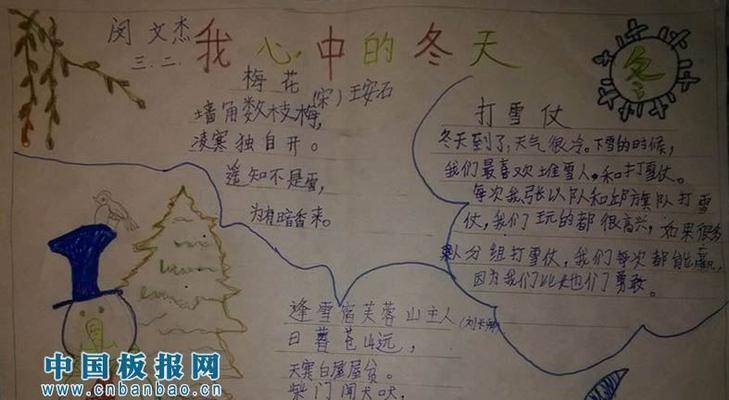 闵文杰
三.二.
我心中的冬天
冬
梅花
(宋)王安石
墙角数枝梅,
凌寒独自开。
遥知不是雪,
为有暗香来。
打雪仗
冬天到了,天气很冷。下雪的时候,
我们最喜欢堆雪人,和打雪仗。
每次我张以队和邱旗队打雪
仗,我们玩的都很高兴,如果很多
队分组打雪仗,我们每次都能赢,
因为我们比他们勇敢。
逢雪宿芙蓉山主人(刘长卿)
日暮苍山远,
天寒白屋屋贫。
柴门闻犬吠,
中国板报网
www.cnbanbao.cn